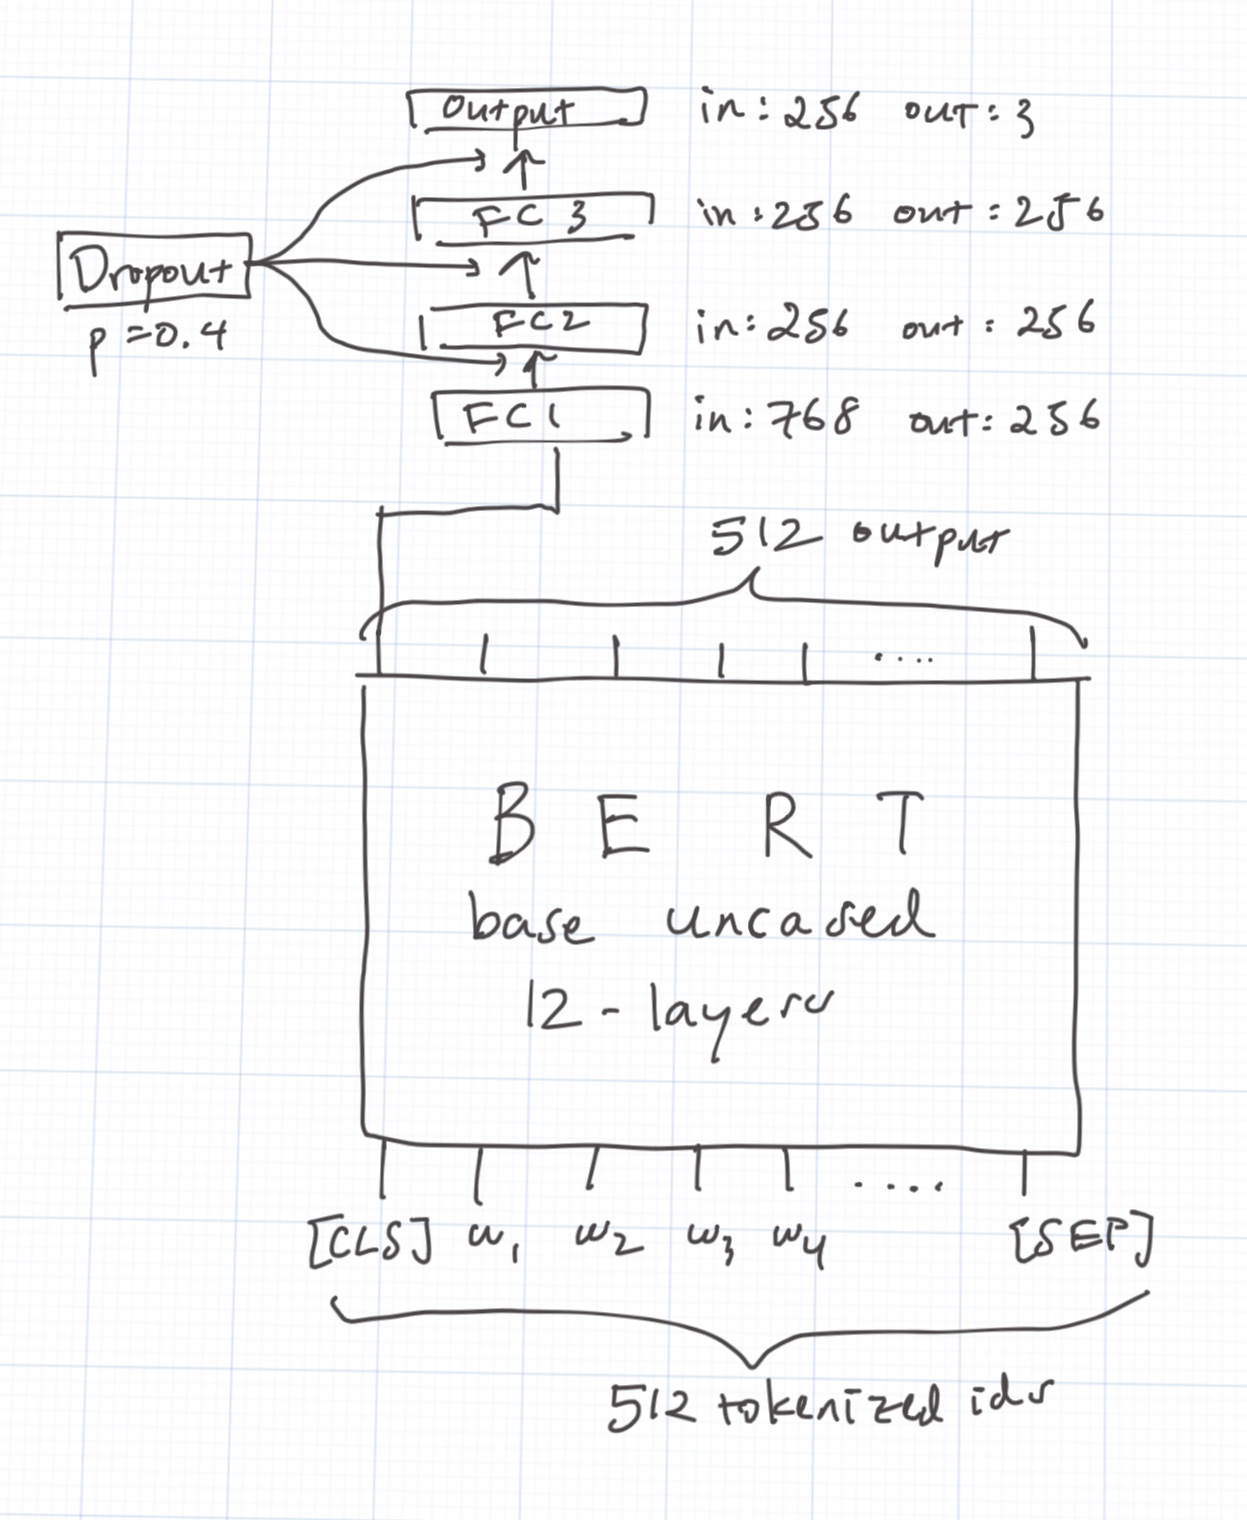 Output in: 256 out: 3
FC 3 in: 256 out: 256
Dropout
p=0.4
FC2 in: 256 out: 256
FC1 in: 768 out: 256
512 output
....
B E R T
base uncased
12-layers
....
[CLS] w1 w2 w3 w4 [SEP]
512 tokenized ids